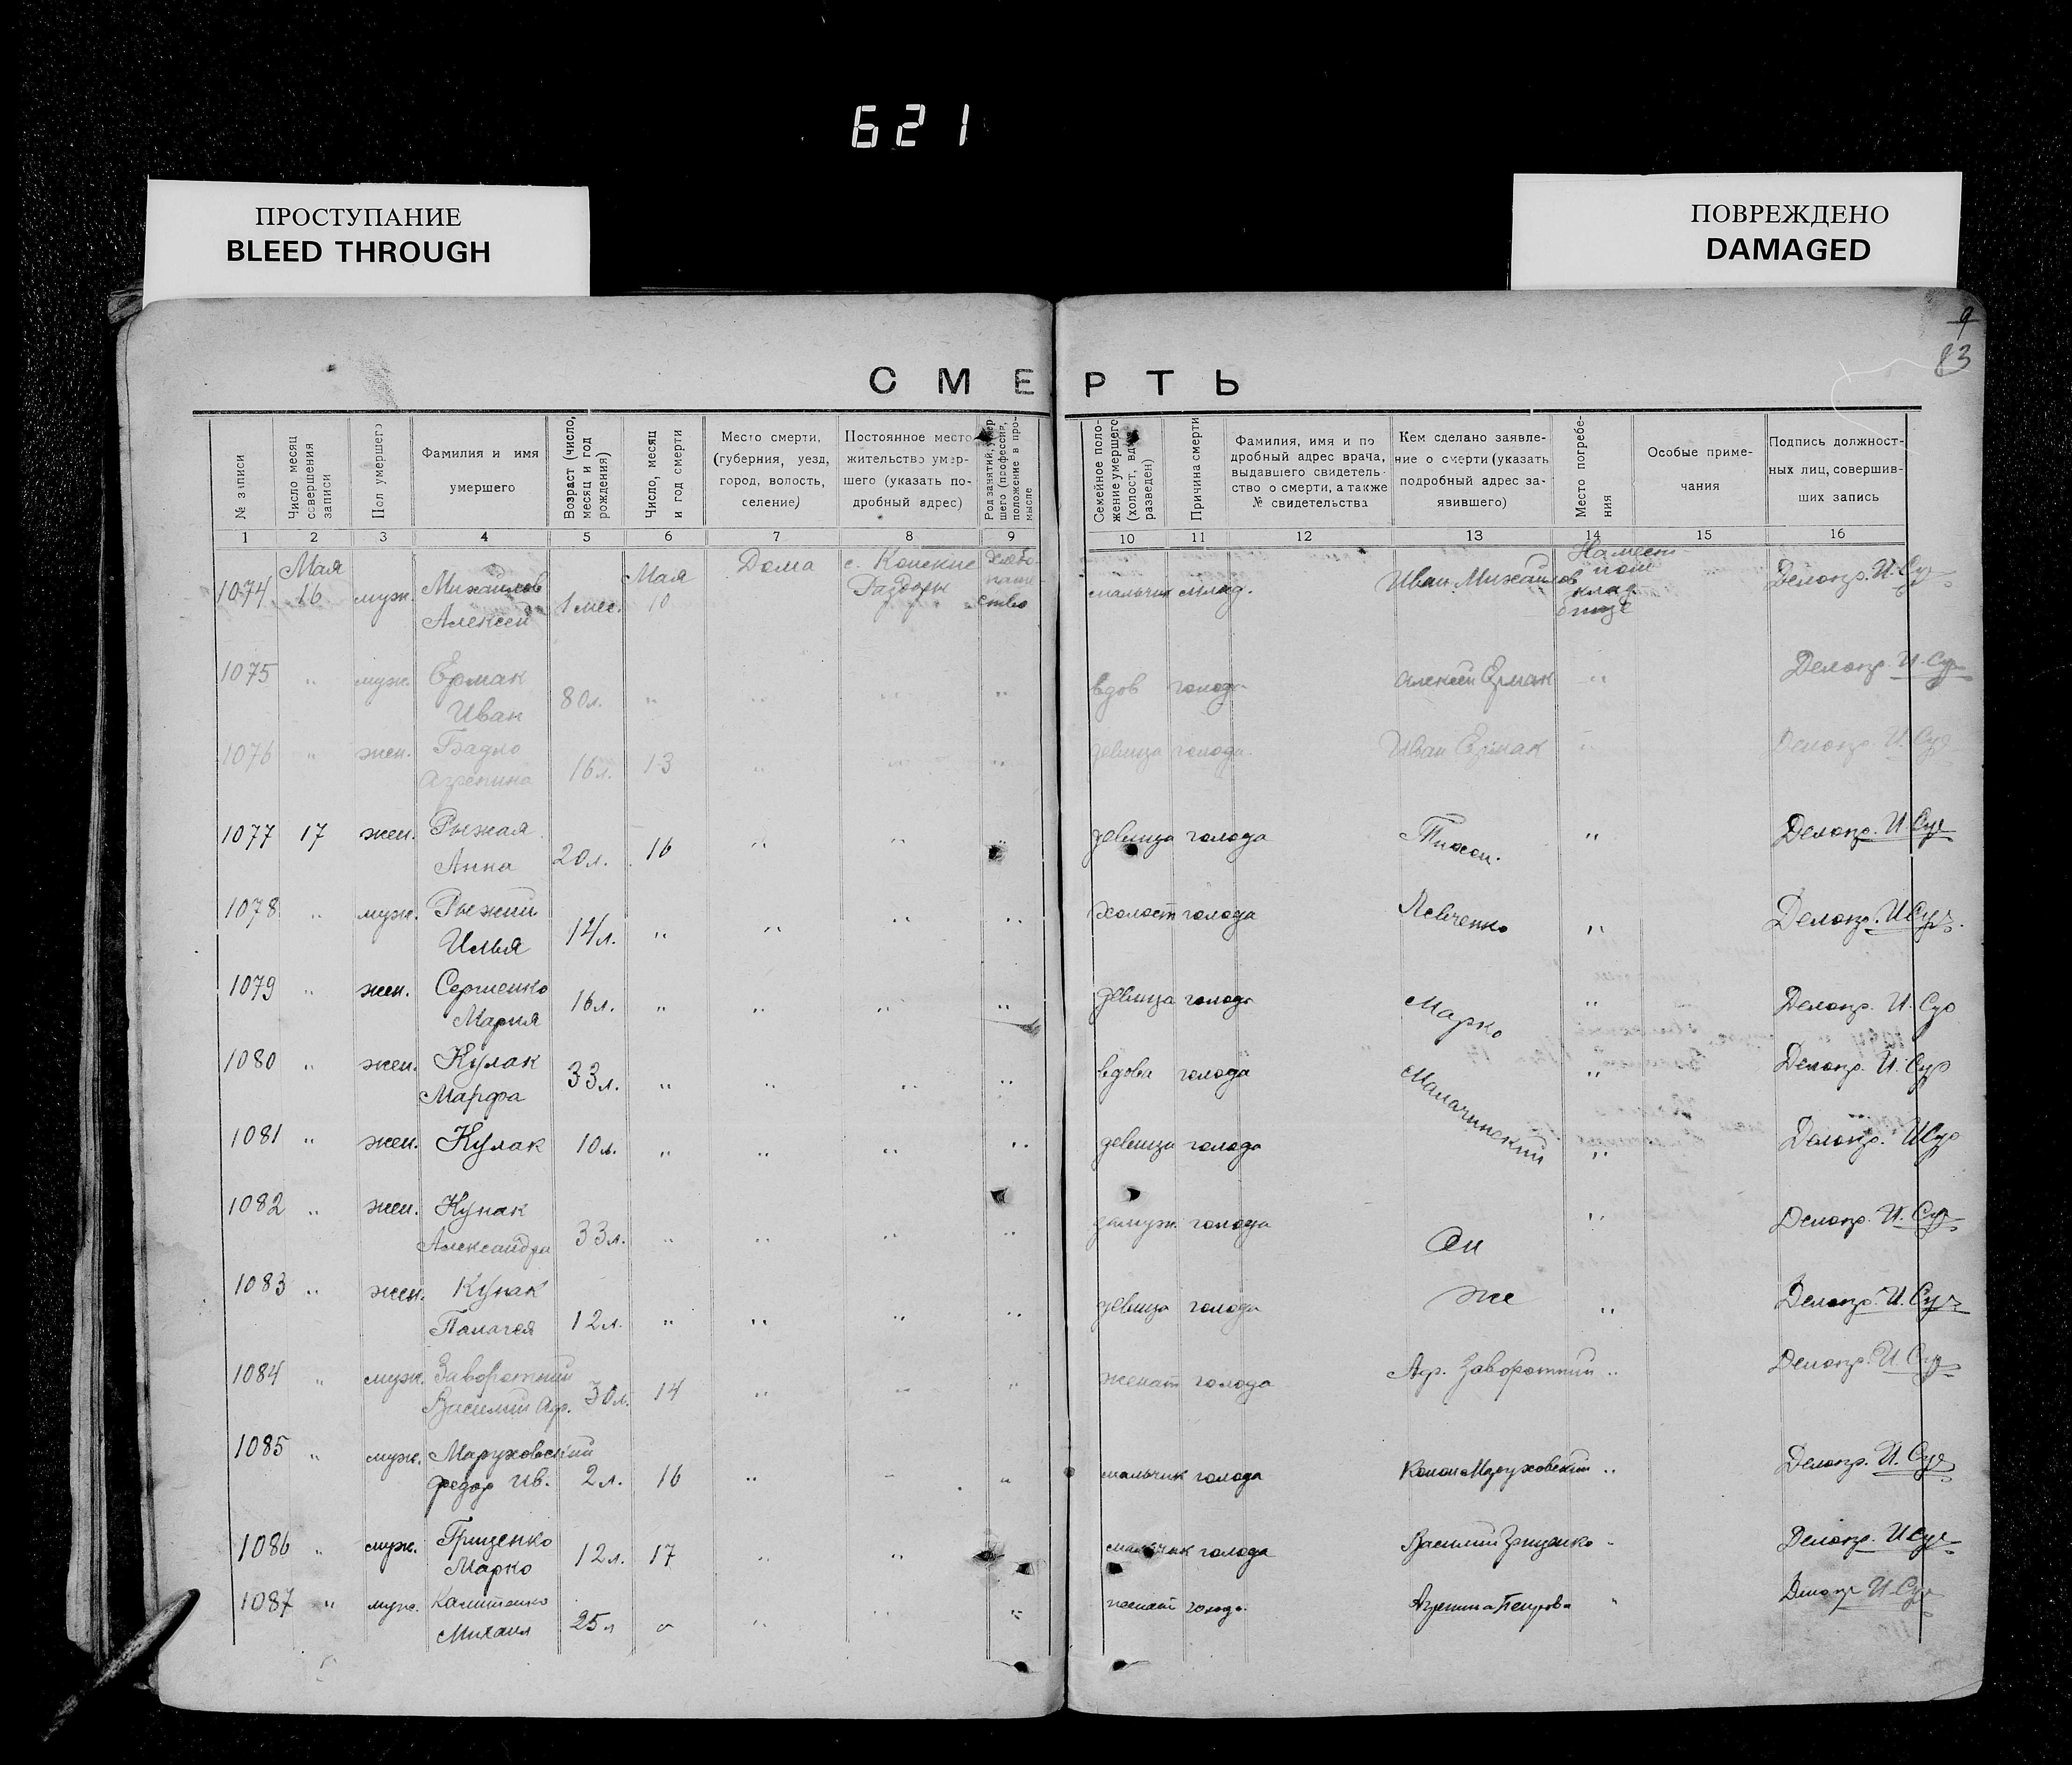 621
ПРОСТУПАНИЕ
BLEED THROUGH
ПОВРЕЖДЕНО
DAMAGED
9
83
СМЕРТЬ
№ записи
Число месяц совершения записи
Пол умершего
Фамилия и имя умершего
Возраст (число, месяц и год рождения)
Число, месяц и год смерти
Место смерти, (губерния, уезд, город, волость, селение)
Постоянное место жительство умершего (указать подробный адрес)
Род занятий, умершего (профессия, положение в промысле
Семейное положение умершего (холост, вдов, разведен)
Причина смерти
Фамилия, имя и подробный адрес врача, выдавшего свидетельство о смерти, а также № свидетельства
Кем сделано заявление о смерти (указать подробный адрес заявившего)
Место погребения
Особые примечания
Подпись должностных лиц, совершивших запись
1 2 3 4 5 6 7 8 9 10 11 12 13 14 15 16
1074 Мая 16 муж. Михайлов Алексей 1 мес. Мая 10 Дома с. Конские Раздоры хлебопашество мальчик млад. Иван Михайлов На местном кладбище Делопр. И. Суд
1075 " муж. Ермак Иван 80 л. " " " " вдов голода Алексей Ермак " Делопр. И. Суд
1076 " жен. Бадло Агрепина 16 л. 13 " " " девица голода Иван Ермак " Делопр. И. Суд
1077 17 жен. Рыжая Анна 20 л. 16 " " " девица голода Тихон " Делопр. И. Суд
1078 " муж. Рыжий Илья 14 л. " " " " холост голода Левченко " Делопр. И. Суд
1079 " жен. Сергиенко Мария 16 л. " " " " девица голода Марко " Делопр. И. Суд
1080 " жен. Кулак Марфа 33 л. " " " " вдова голода " Делопр. И. Суд
1081 " жен. Кулак 10 л. " " " " девица голода " Делопр. И. Суд
1082 " жен. Кулак Александра 33 л. " " " " замуж. голода Он " Делопр. И. Суд
1083 " жен. Кулак Палагея 12 л. " " " " девица голода же " Делопр. И. Суд
1084 " муж. Заворотний Василий 30 л. 14 " " " женат голода Заворотний " Делопр. И. Суд
1085 " муж. Маруховский Федор Ив. 2 л. 16 " " " мальчик голода Маруховский " Делопр. И. Суд
1086 " муж. Грищенко Марко 12 л. 17 " " мальчик голода Василий Грищенко " Делопр. И. Суд
1087 " муж. Михаил 25 л " " " " женат голода Агрепина Петрова " Делопр. И. Суд